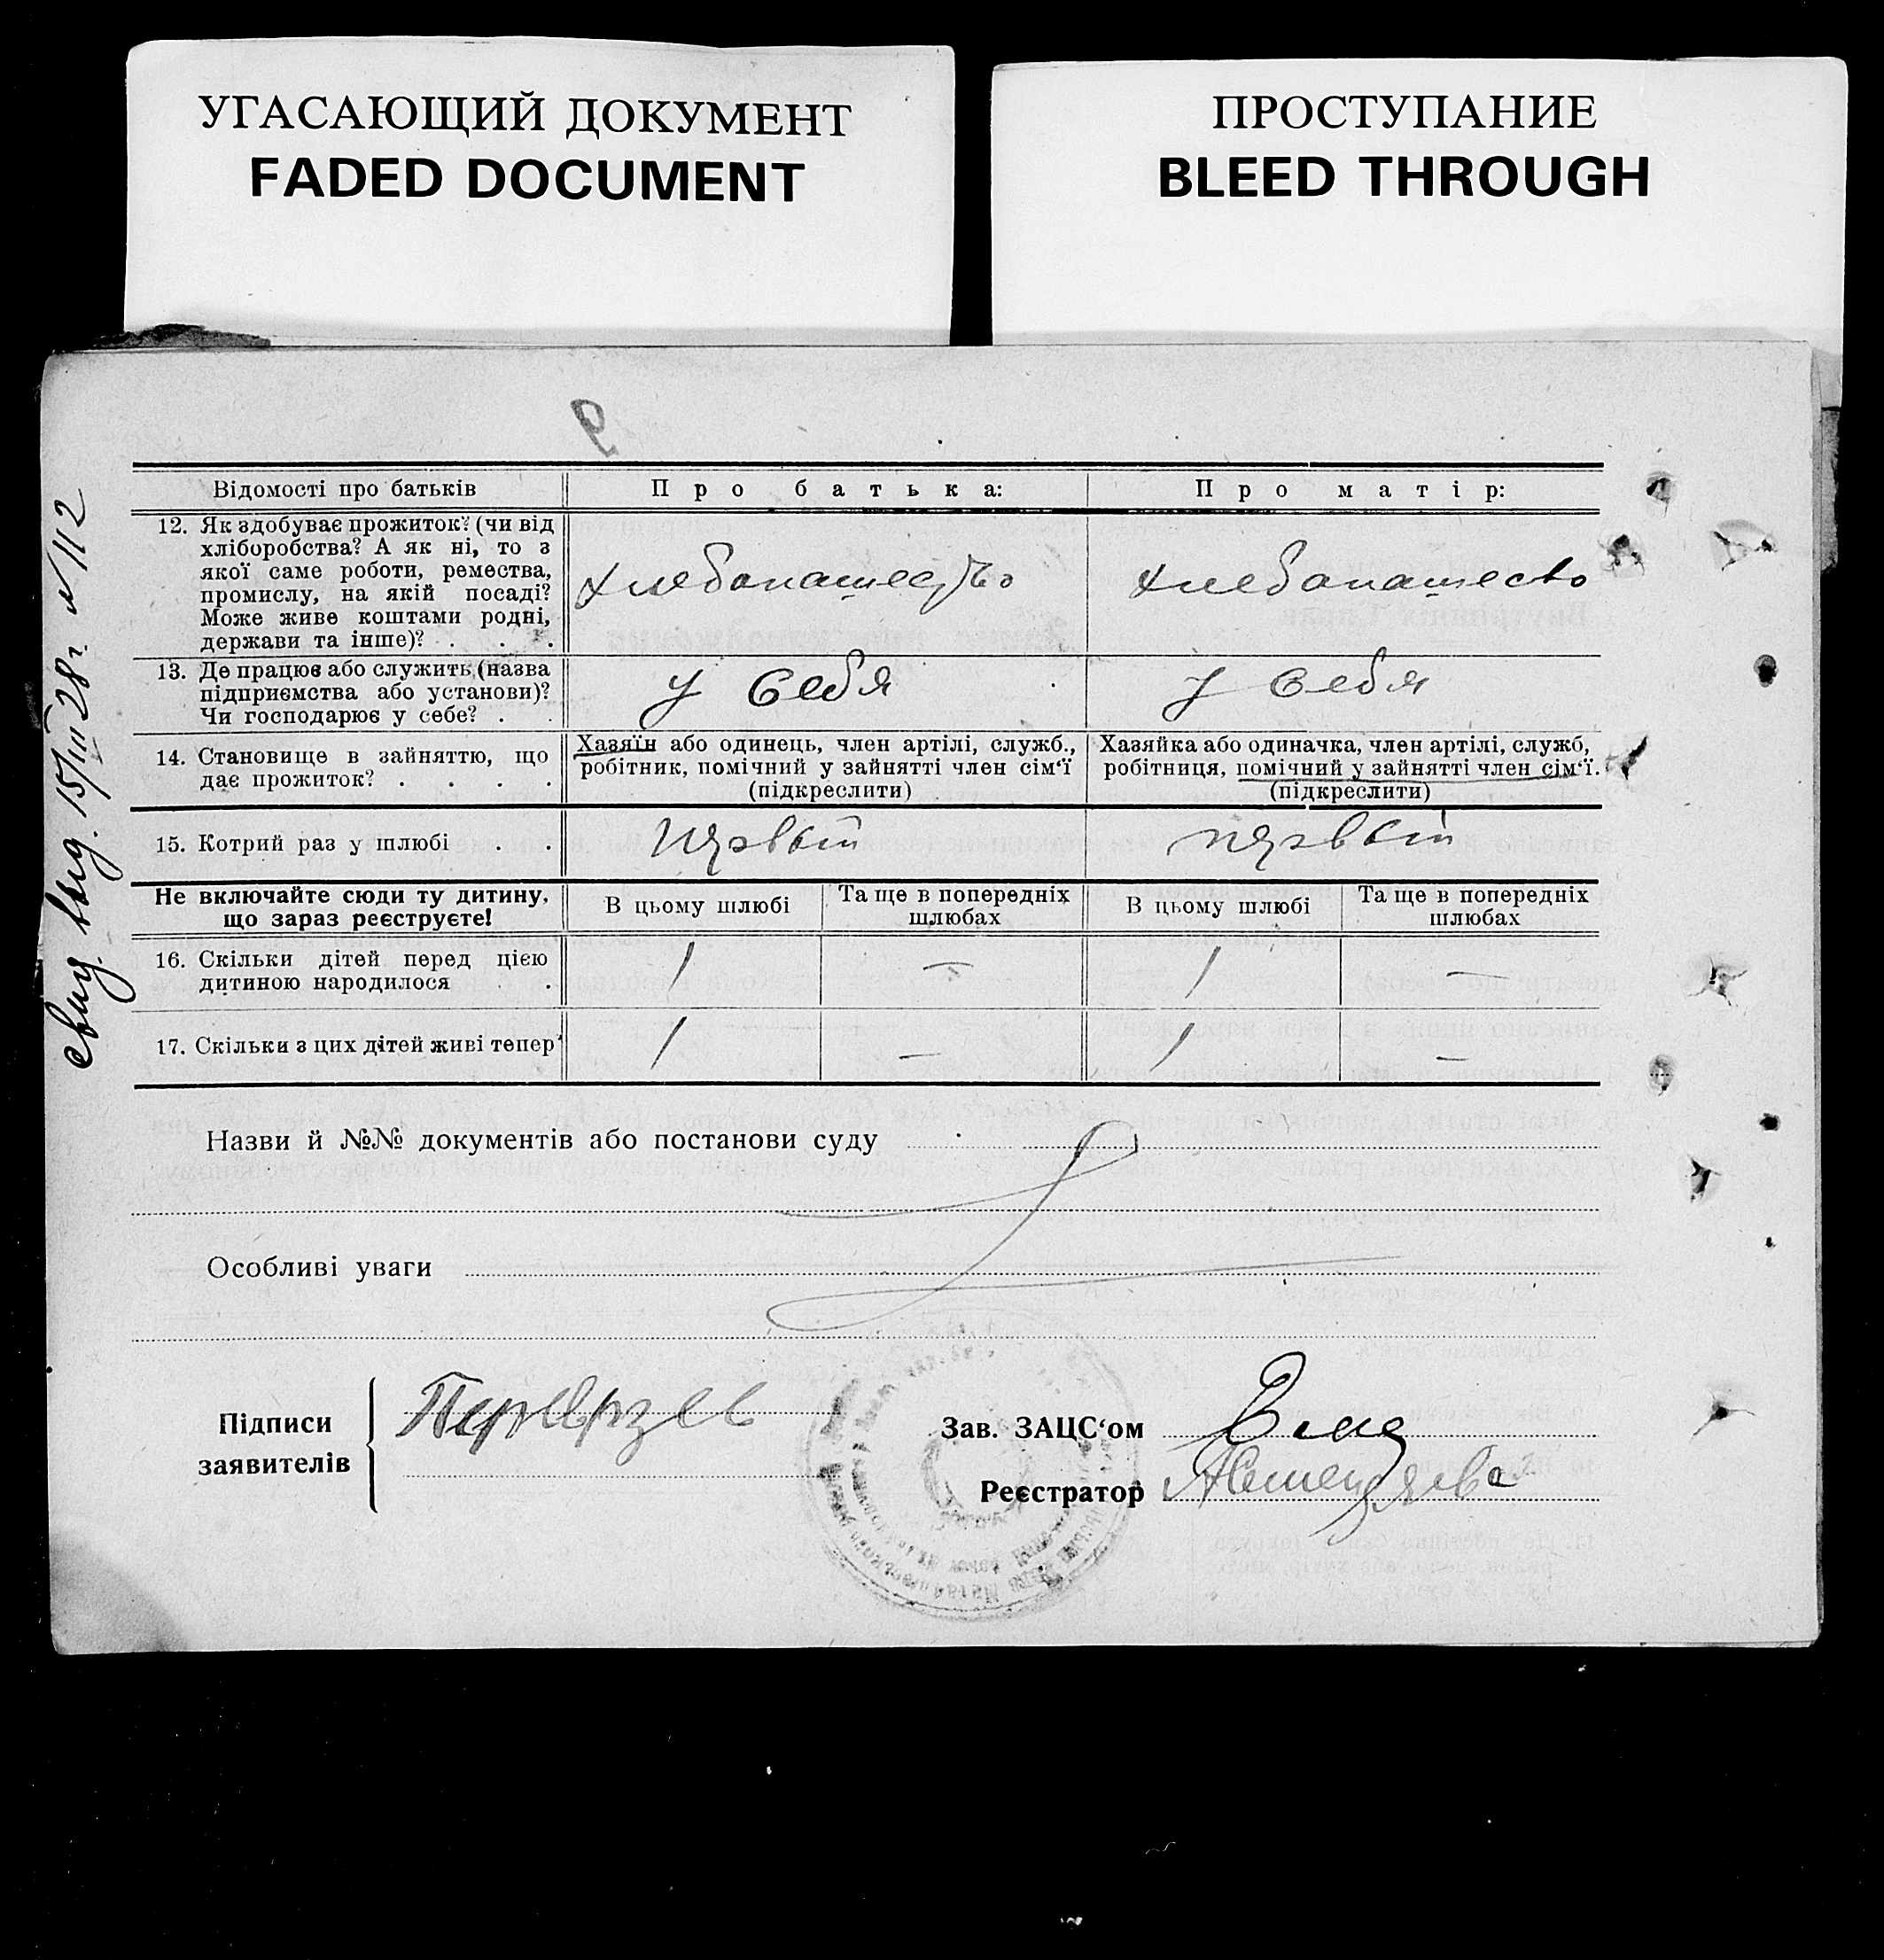 УГАСАЮЩИЙ ДОКУМЕНТ
FADED DOCUMENT
ПРОСТУПАНИЕ
BLEED THROUGH
9
свид. выд. 15/III 28 г. N 112
Відомості про батьків
Про батька:
Про матір:
12. Як здобуває прожиток? (чи від
хліборобства? А як ні, то з
якої саме роботи, ремества,
промислу, на якій посаді?
Може живе коштами родні,
держави та інше)? . . .
хлебопашество
хлебопашество
13. Де працює або служить (назва
підприємства або установи)?
Чи господарює у себе? . .
у себя
у себя
14. Становище в зайняттю, що
дає прожиток? . . . .
Хазяїн або одинець, член артілі, служб.,
робітник, помічний у зайнятті член сім‘ї
(підкреслити)
Хазяйка або одиначка, член артілі, служб,
робітниця, помічний у зайнятті член сім‘ї.
(підкреслити)
15. Котрий раз у шлюбі . .
первый
первый
Не включайте сюди ту дитину,
що зараз реєструєте!
В цьому шлюбі
Та ще в попередніх
шлюбах
В цьому шлюбі
Та ще в попередніх
шлюбах
16. Скільки дітей перед цією
дитиною народилося .
1 — 1 —
17. Скільки з цих дітей живі тепер
1 — 1 —
Назви й №№ документів або постанови суду
Особливі уваги
Підписи
заявителів
Зав. ЗАЦС‘ом
Реєстратор